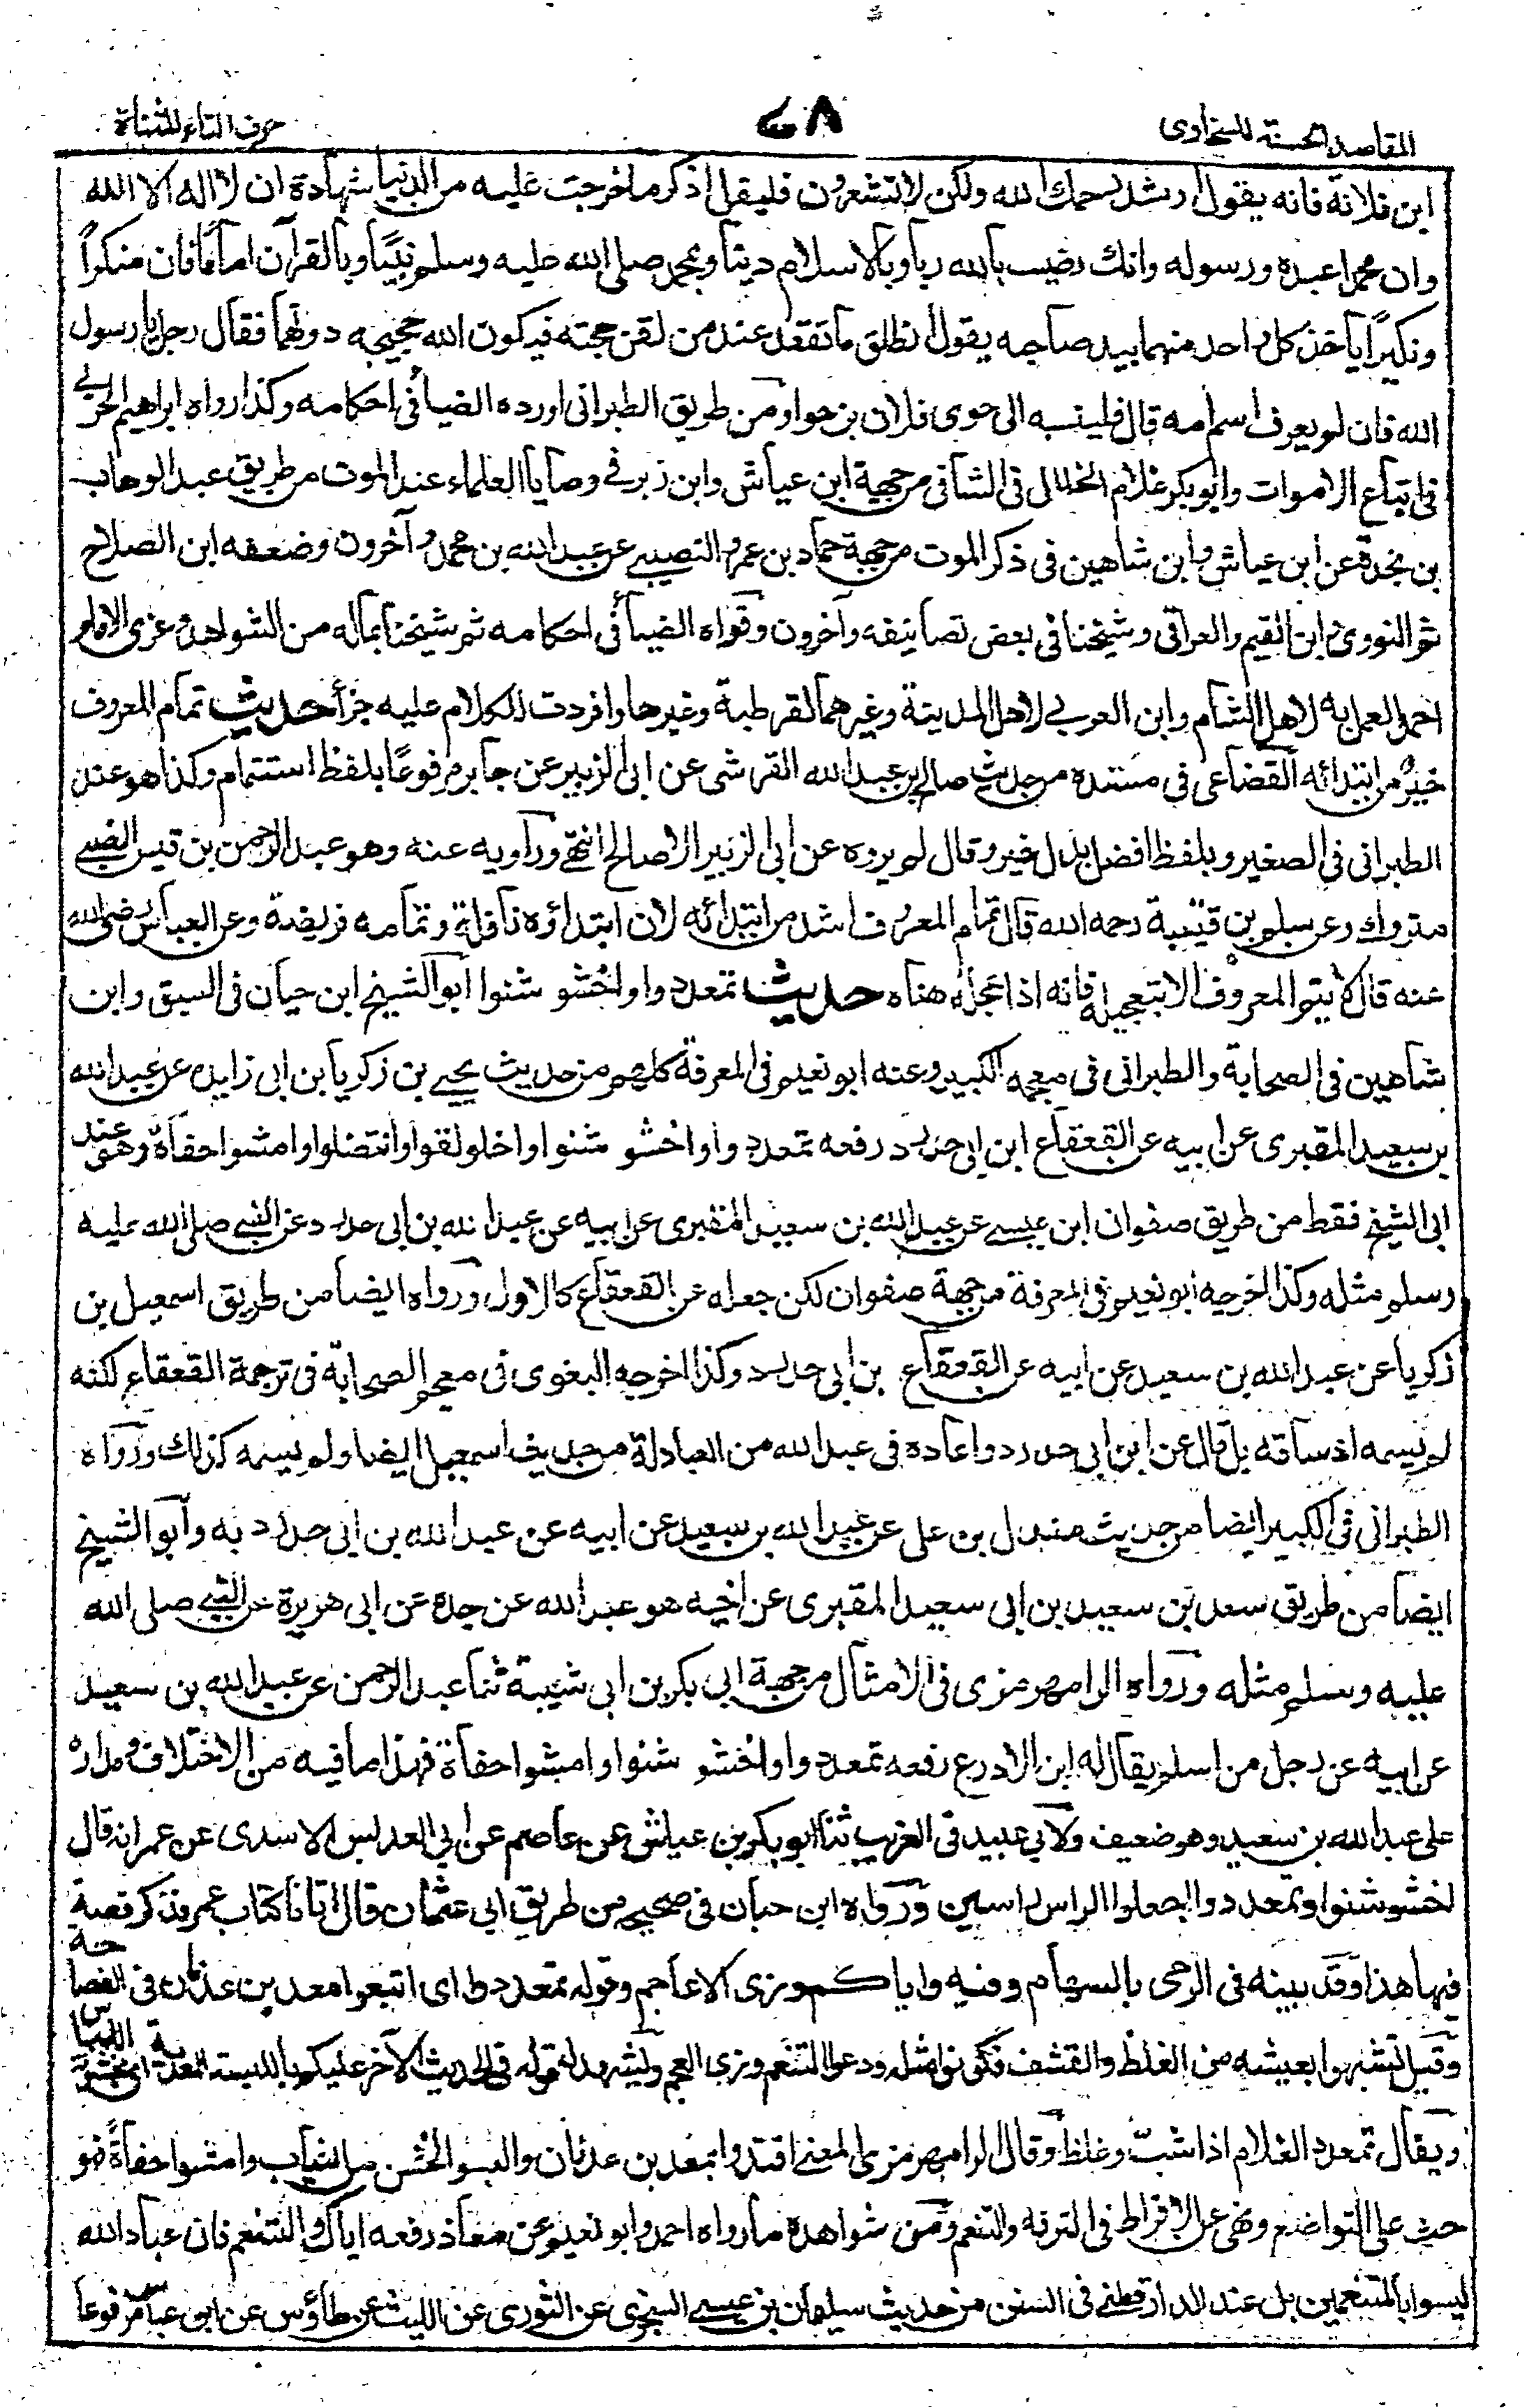 المقاصد الحسنة للسخاوى
٧٨
حرف التاء المثناة
ابن فلانة فانه يقول ارشد يرحمك الله ولكن لا تشعرون فليقل اذكر ما خرجت عليه من الدنيا شهادة ان لا اله الا الله
وان محمدا عبده ورسوله وانك رضيت بالله ربا وبالاسلام دينا وبمحمد صلى الله عليه وسلم نبيًا وبالقرآن امامًا فان منكراً
ونكيراً ياخذ كل واحد منهما بيد صاحبه يقول انطلق ما نقعد عند من لقن حجته فيكون الله حجيجه دونهما فقال رجل يا رسول
الله فان لم يعرف اسم امه قال فلينسبه الى حوى فلان بن حوا ومن طريق الطبرانى اورده الضيا فى احكامه وكذا رواه ابراهيم الحربي
فى اتباع الاموات وابو بكر غلام الخلال فى الشافى من جهة ابن عياش وابن زبر في وصايا العلماء عند الموت من طريق عبد الوهاب
بن نجدة عن ابن عياش وابن شاهين فى ذكر الموت من جهة حماد بن عمرو النصيبي عن عبد الله بن محمد وآخرون وضعفه ابن الصلاح
ثم النووى وابن القيم والعراقى وشيخنا فى بعض تصانيفه وآخرون وقواه الضيا فى احكامه ثم شيخنا بماله من الشواهد وعزى الامام
احمد العمل به لاهل الشام وابن العربي لاهل المدينة وغيرهما كقرطبة وغيرها وافردت للكلام عليه جزأ حديث تمام المعروف
خير من ابتدائه القضاعى فى مسنده من حديث صالح بن عبد الله القرشى عن ابى الزبير عن جابر مرفوعًا بلفظ استتمام وكذا هو عند
الطبرانى فى الصغير وبلفظ افضل بدل خير وقال لم يروه عن ابى الزبير الا صالح انتهى وراويه عنه وهو عبد الرحمن بن قيس الضبي
متروك وعن سلم بن قتيبة رحمه الله قال تمام المعروف اشد من ابتدائه لان ابتداؤه نافلة وتمامه فريضة وعن العباس رضى الله
عنه قال لا يتم المعروف الا بتعجيله فانه اذا عجله هناه حديث تمعددوا واخشو شنوا ابو الشيخ ابن حيان فى السبق وابن
شاهين فى الصحابة والطبرانى فى معجمه الكبير وعنه ابو نعيم فى المعرفة كلهم من حديث يحيى بن زكريا بن ابى زايده عن عبد الله
بن سعيد المقبرى عن ابيه عن القعقاع ابن ابى حدرد رفعه تمعددوا واخشو شنوا واخلولقوا وانتضلوا وامشوا حفاة وهو عند
ابى الشيخ فقط من طريق صفوان ابن عيسى عن عبد الله بن سعيد المقبرى عن ابيه عن عبد الله بن ابى حدرد عن النبي صلى الله عليه
وسلم مثله وكذا اخرجه ابو نعيم فى المعرفة من جهة صفوان لكن جعله عن القعقاع كالاول ورواه ايضا من طريق اسمعيل بن
زكريا عن عبد الله بن سعيد عن ابيه عن القعقاع بن ابى حدرد وكذا اخرجه البغوى فى معجم الصحابة فى ترجمة القعقاع لكنه
لم يسمه اذ ساقه بل قال عن ابن ابى حدرد واعاده فى عبد الله من العبادلة من حديث اسمعيل ايضا ولم يسمه كذلك ورواه
الطبرانى فى الكبير ايضا من حديث مندل بن على عن عبد الله بن سعيد عن ابيه عن عبد الله بن ابى حدرد به وابو الشيخ
ايضا من طريق سعد بن سعيد بن ابى سعيد المقبرى عن اخيه هو عبد الله عن جده عن ابى هريرة عن النبي صلى الله
عليه وسلم مثله ورواه الرامهرمزى فى الامثال من جهة ابى بكر بن ابى شيبة ثنا عبد الرحمن عن عبد الله بن سعيد
عن ابيه عن رجل من اسلم يقال له ابن الادرع رفعه تمعددوا واخشو شنوا وامشوا حفاة فهذا ما فيه من الاختلاف ومداره
على عبد الله بن سعيد وهو ضعيف ولابي عبيد فى الغريب ثنا ابو بكر بن عياش عن عاصم عن ابي العدبس الاسدى عن عمر انه قال
اخشوشنوا وتمعددوا واجعلوا الراس راسين ورواه ابن حبان فى صحيحه من طريق ابي عثمان قال اتانا كتاب عمر فذكر قصة
فيها هذا وقد بينه فى الرمى بالسهام وفيه واياكم وزى الاعاجم وقوله تمعددوا اى اتبعوا معد بن عدنان فى الفصاحة
وقيل تشبهوا بعيشه من الغلظ والقشف فكونوا مثله ودعوا التنعم وزى العجم ويشهد له قوله فى الحديث الآخر عليكم باللبسة المعدية اى خشونة اللباس
ويقال تمعدد الغلام اذا شبّ وغلظ وقال الرامهرمزى المعنى اقتدوا بمعد بن عدنان والبسوا الخشن من الثياب وامشوا حفاةً فهو
حث على التواضع ونهى عن الافراط فى الترفه والتنعم ومن شواهده ما رواه احمد وابو نعيم عن معاذ رفعه اياك والتنعم فان عباد الله
ليسوا بالمتنعمين بل عند الدارقطنى فى السنن من حديث سليمان بن عيسى السجزى عن الثورى عن الليث عن طاؤس عن ابن عباس مرفوعا